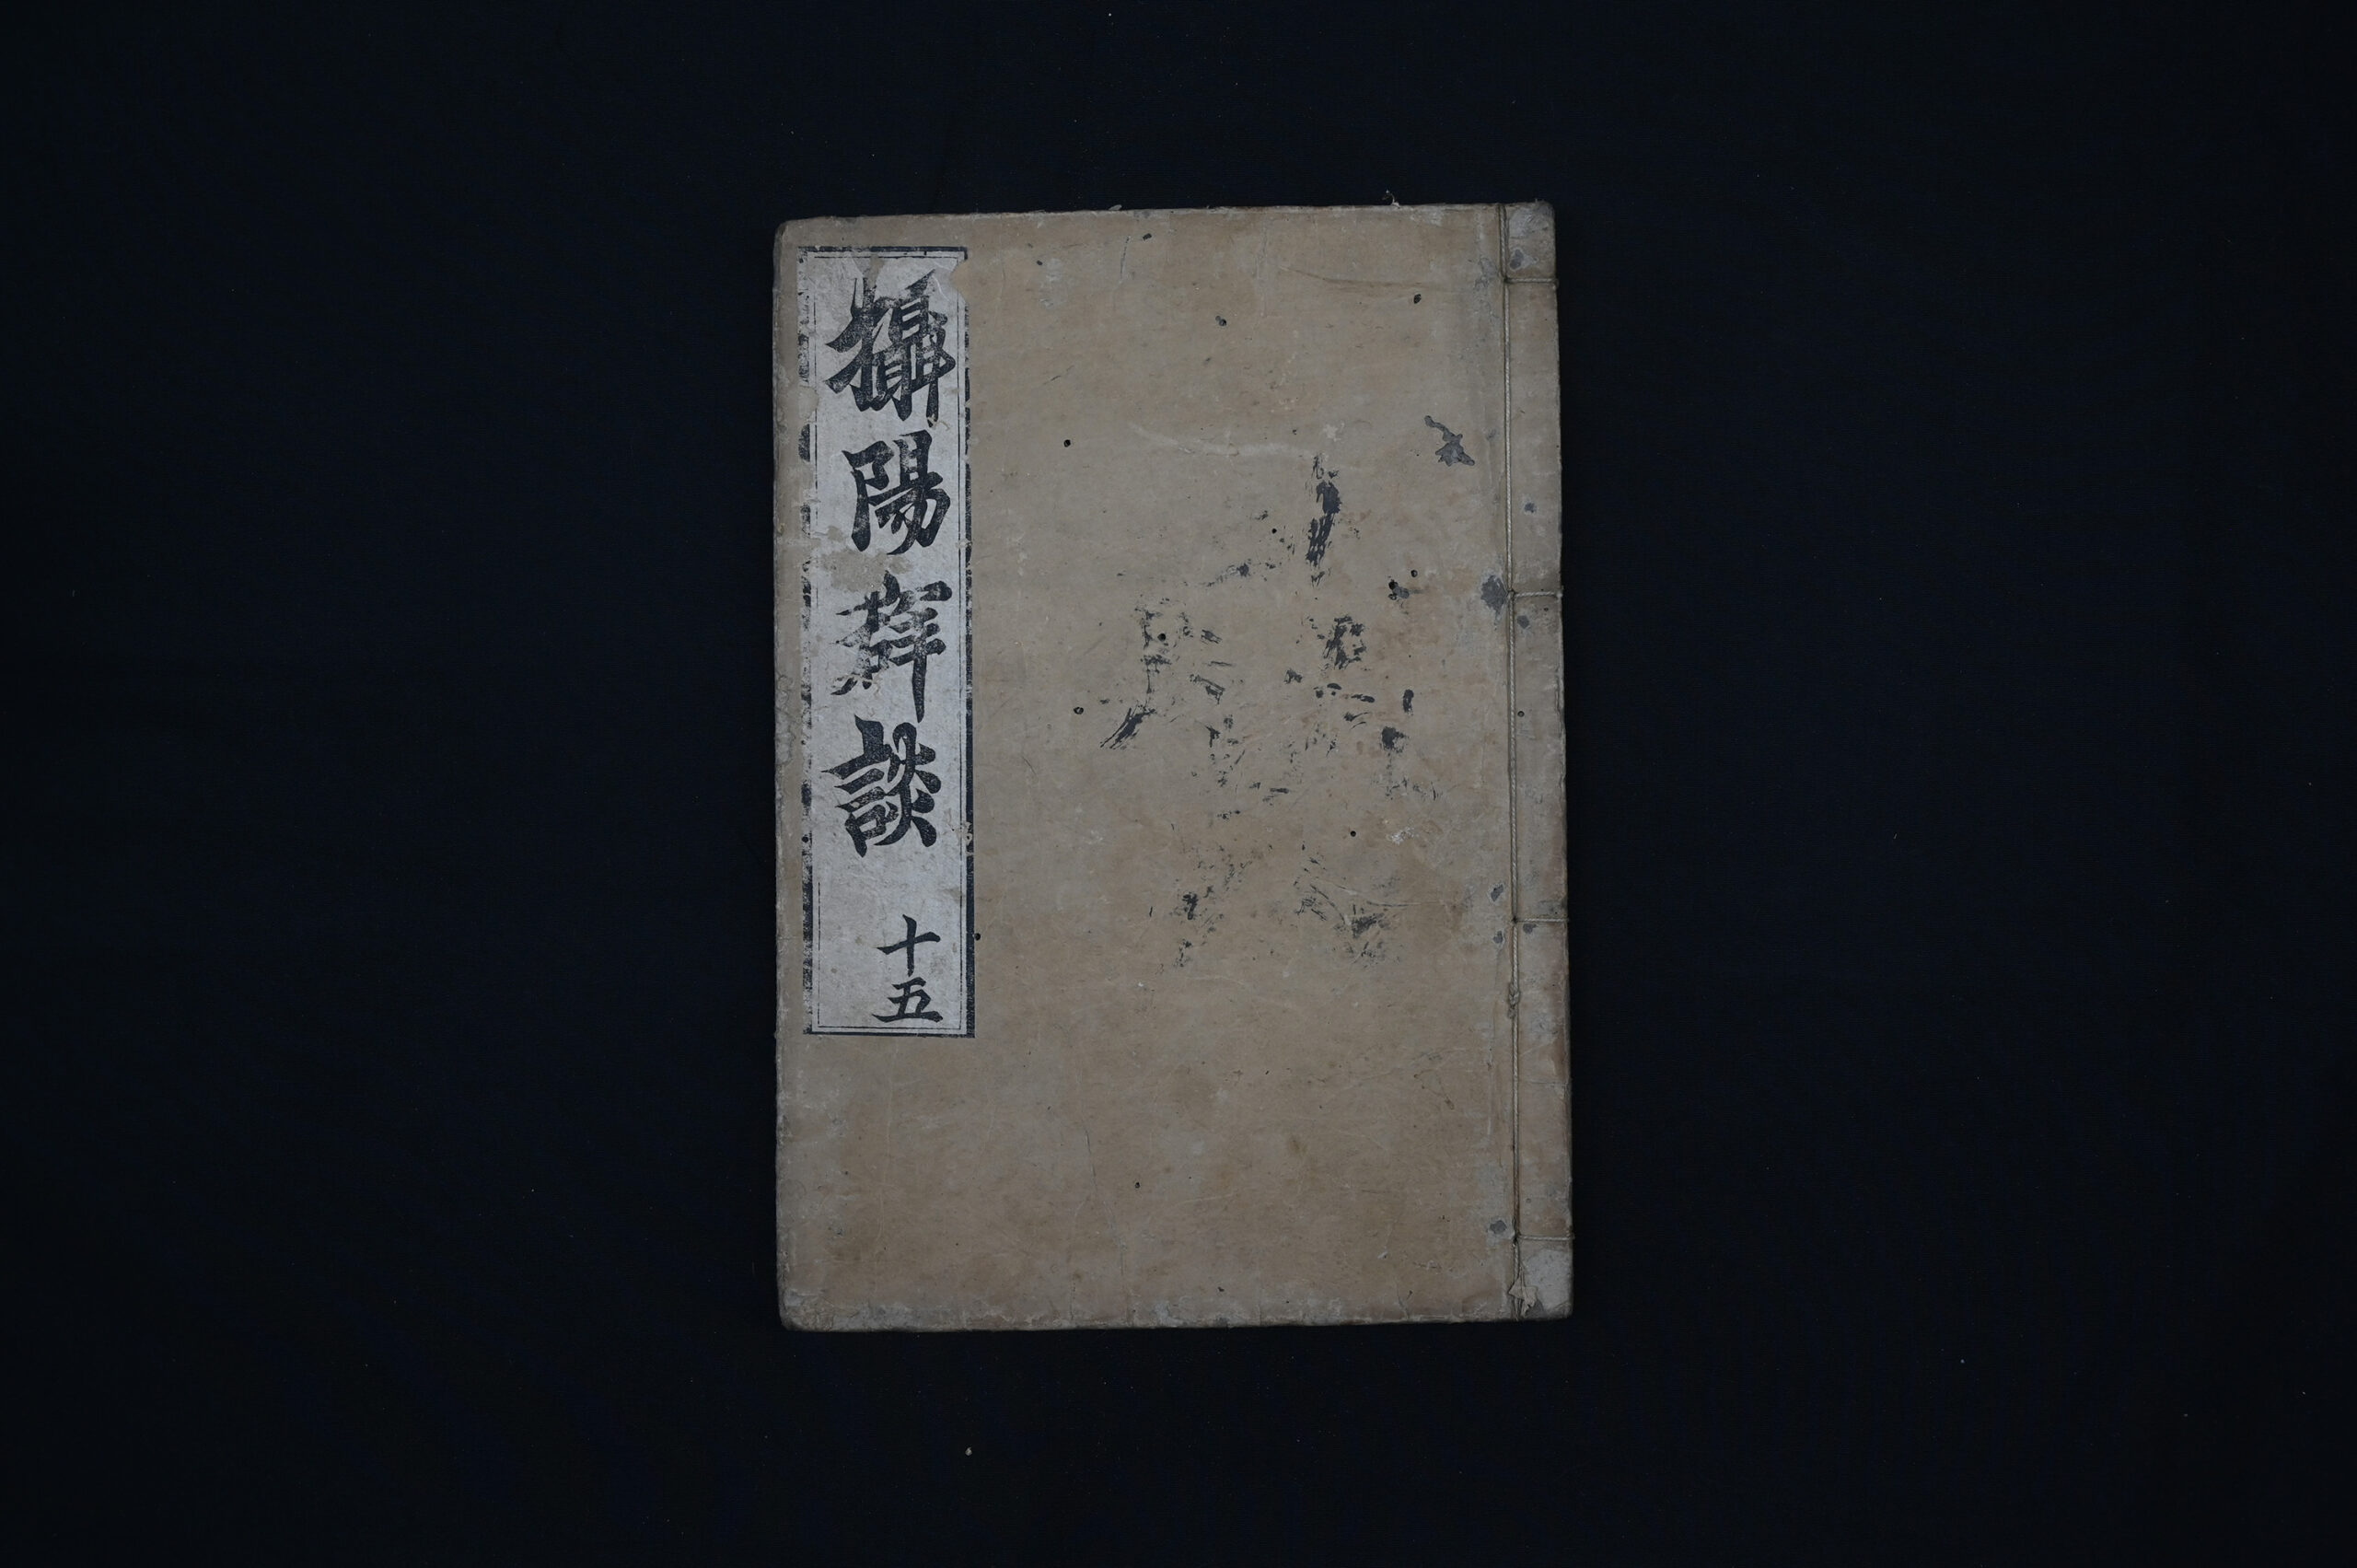 攝陽群談
十五